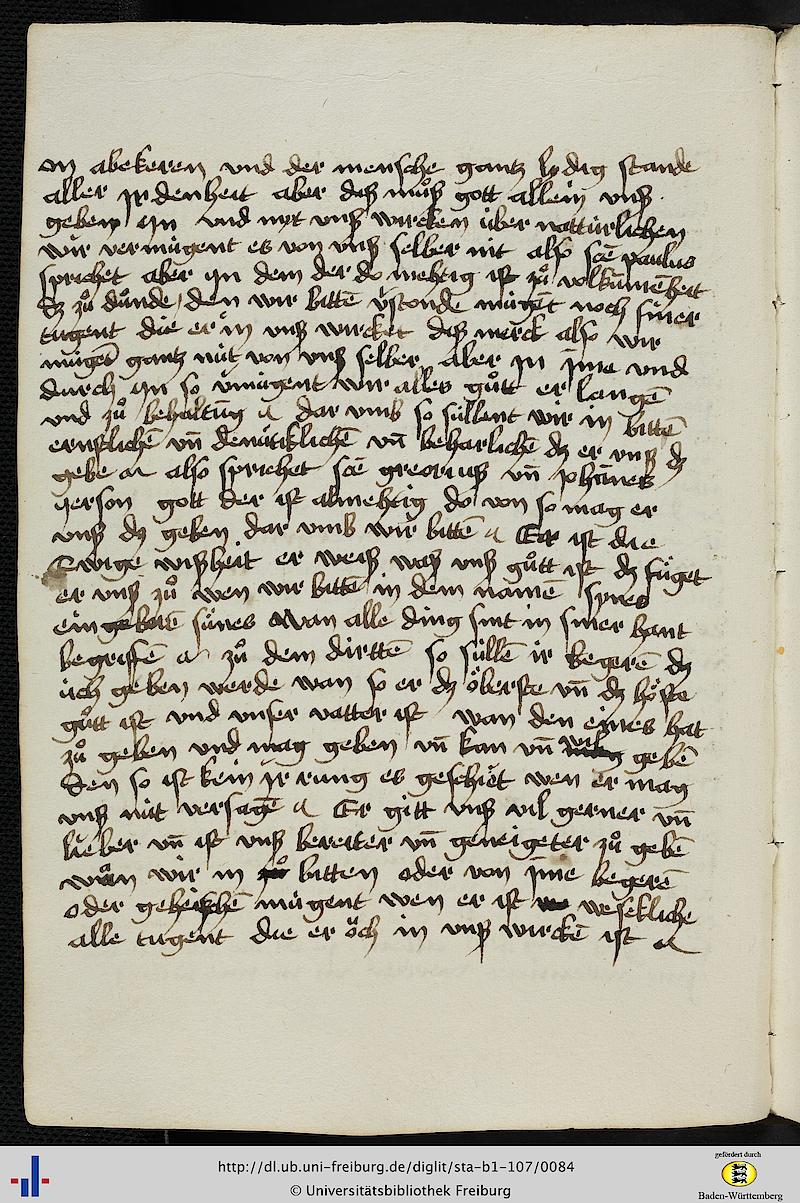 in abekeren vnd der mensche gantz lydig stande
aller jrdenheit aber daß muͦß gott allein vnß
geben jn vnd myt vnß wircken über nattürlichen
wir vermügent es von vnß selber nit also scē paulus
sprichet aber jn dem der do mehtig ist zuͦ volkūmēheit
zuͦ duͦnde den wir bittē v̄stondē mügēt noch siner
tugent die er in vnß wircket daß merck also wir
mügēt gantz nüt von vnß selber aber jn jme vnd
durch jn so v̄mügent wir alles guͦtt er langē
vnd zuͦ behaltūg dar vmb so süllent wir in bittē
ernstlichē vn̄ demütiklichē vn̄ beharlichē dz er vnß dz
gebe also sprichet scē greoriuß vn̄ johānes
gott der ist almehtig do von so mag er
vnß dz geben dar vmb wir bittē Er ist die
Ewige wißheit er weiß waß vnß guͦtt ist dz füget
er vnß zuͦ wen wir bittē in dem namē synes
ein gebornē sünes wan alle ding sint in siner hant
begriffē zuͦ dem dirttē so süllē ir begerē dz
üch geben werde wan so er dz öberste vn̄ dz höste
guͦtt ist vnd vnser vatter ist wan den eines hat
zuͦ geben vnd mag geben vn̄ kan vn̄ wil gebē
den so ist kein jr rung es geschiet wen er mag
vnß nüt versagē Er gitt vnß vil gerner vn̄
lieber vn̄ ist vnß bereiter vn̄ geneigeter zuͦ gebē
wan wir in bitten oder von jme begerē
oder geheischē mügent wen er ist wesēkliche
alle tugent die er öch in vnß wirckē ist
http://dl.ub.uni-freiburg.de/diglit/sta-b1-107/0084
© Universitätsbibliothek Freiburg
gefördert durch
Baden-Württemberg